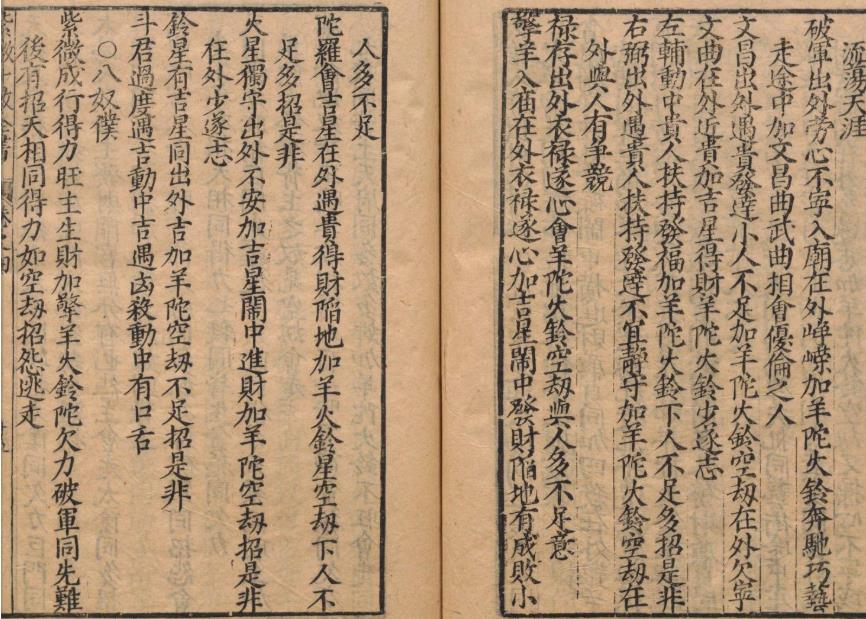 流蕩天涯
破軍出外勞心不寧入廟在外崢嶸加羊陀火鈴奔馳巧藝
走途中加文昌曲武曲相會優倫之人
文昌出外遇貴發達小人不足加羊陀火鈴空劫在外欠寧
文曲在外近貴加吉星得財羊陀火鈴少遂志
左輔動中貴人扶持發福加羊陀火鈴下人不足多招是非
右弼出外遇貴人扶持發達不宜靜守加羊陀火鈴空劫在
外與人有爭競
祿存出外衣祿遂心會羊陀火鈴空劫與人多不足意
擎羊入庙在外衣祿遂心加吉星鬧中發財陷地有成敗小
人多不足
陀羅會吉星在外遇貴得財陷地加羊火鈴星空劫下人不
足多招是非
火星獨守出外不安加吉星鬧中進財加羊陀空劫招是非
在外少遂志
鈴星有吉星同出外吉加羊陀空劫不足招是非
斗君過度遇吉動中吉遇凶殺動中有口舌
○八奴僕
紫微成行得力旺主生財加擎羊火鈴陀欠力破軍同先難
後有招天相同得力如空劫招怨逃走